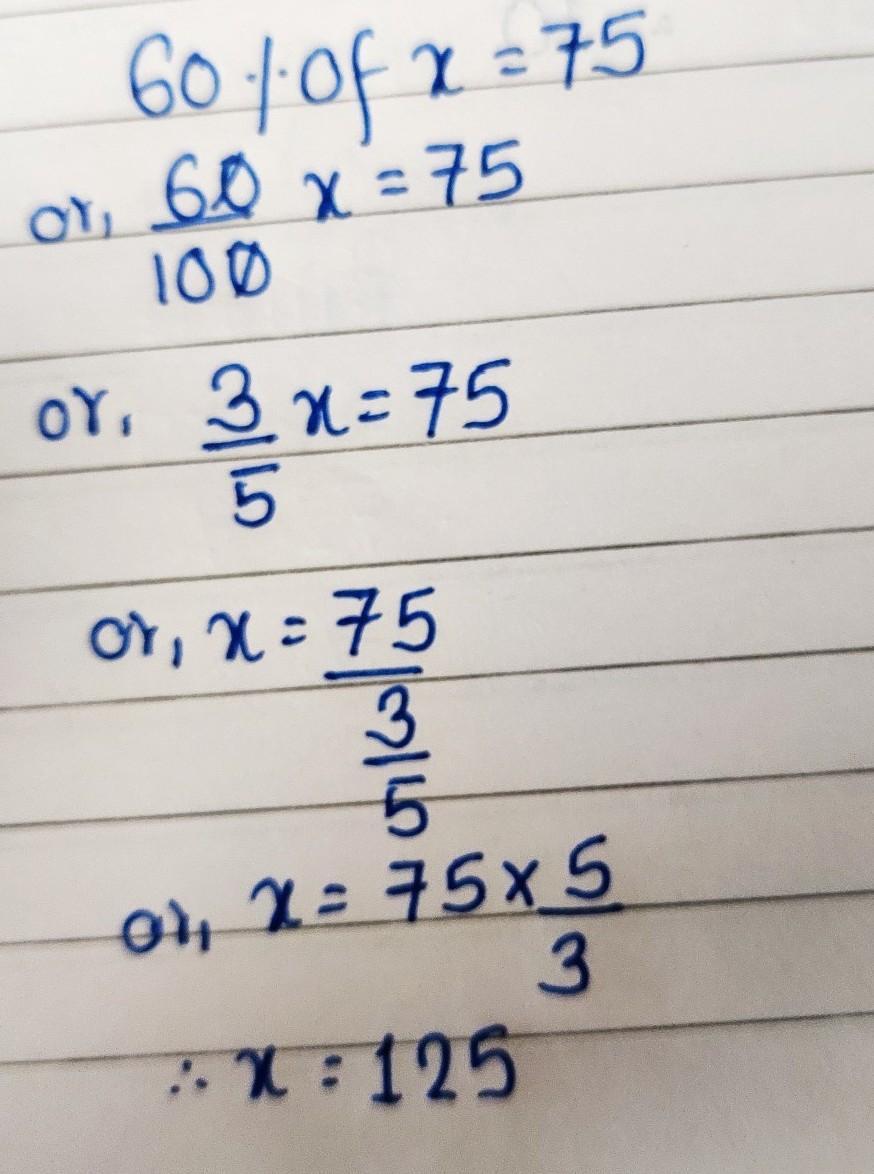 60% of x = 75
or, 60/100 x = 75
or, 3/5 x = 75
or, x = 75/(3/5)
or, x = 75 × 5/3
∴ x = 125